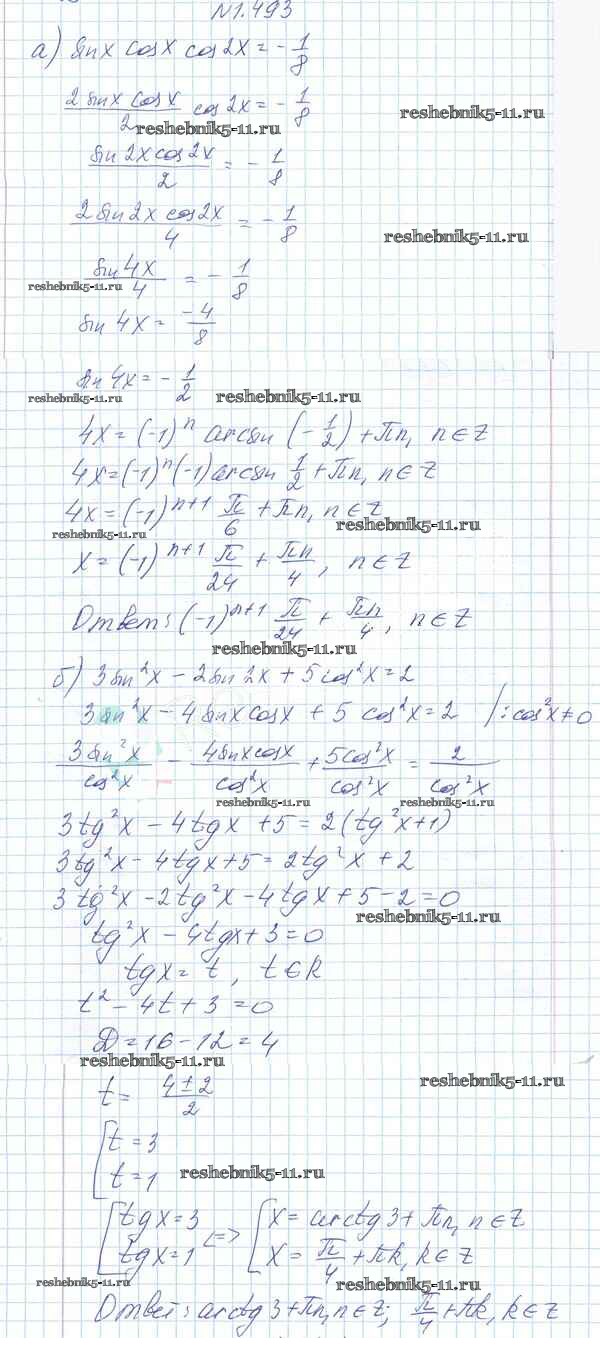 №1.493
а) sinx cosx cos2x = - 1/8
2 sinx cosx / 2 cos2x = - 1/8
reshebnik5-11.ru
reshebnik5-11.ru
sin2x cos2x / 2 = - 1/8
2 sin2x cos2x / 4 = - 1/8
reshebnik5-11.ru
sin4x / 4 = - 1/8
reshebnik5-11.ru
sin4x = -4/8
sin4x = - 1/2
reshebnik5-11.ru
reshebnik5-11.ru
4x = (-1)^n arcsin (- 1/2) + πn, n∈Z
4x = (-1)^n (-1) arcsin 1/2 + πn, n∈Z
4x = (-1)^{n+1} π/6 + πn, n∈Z
reshebnik5-11.ru
reshebnik5-11.ru
x = (-1)^{n+1} π/24 + πn/4, n∈Z
Ответ: (-1)^{n+1} π/24 + πn/4, n∈Z
reshebnik5-11.ru
б) 3sin²x - 2sin2x + 5cos²x = 2
3sin²x - 4sinx cosx + 5 cos²x = 2 /: cos²x ≠ 0
3sin²x / cos²x - 4sinx cosx / cos²x + 5cos²x / cos²x = 2 / cos²x
reshebnik5-11.ru
reshebnik5-11.ru
3tg²x - 4tgx + 5 = 2(tg²x + 1)
3tg²x - 4tgx + 5 = 2tg²x + 2
3tg²x - 2tg²x - 4tgx + 5 - 2 = 0
reshebnik5-11.ru
tg²x - 4tgx + 3 = 0
tgx = t, t∈R
t² - 4t + 3 = 0
D = 16 - 12 = 4
reshebnik5-11.ru
reshebnik5-11.ru
t = 4±2 / 2
[t = 3
t = 1
reshebnik5-11.ru
[tgx = 3 <=> [x = arctg3 + πn, n∈Z
tgx = 1 x = π/4 + πk, k∈Z
reshebnik5-11.ru
reshebnik5-11.ru
Ответ: arctg3 + πn, n∈Z; π/4 + πk, k∈Z